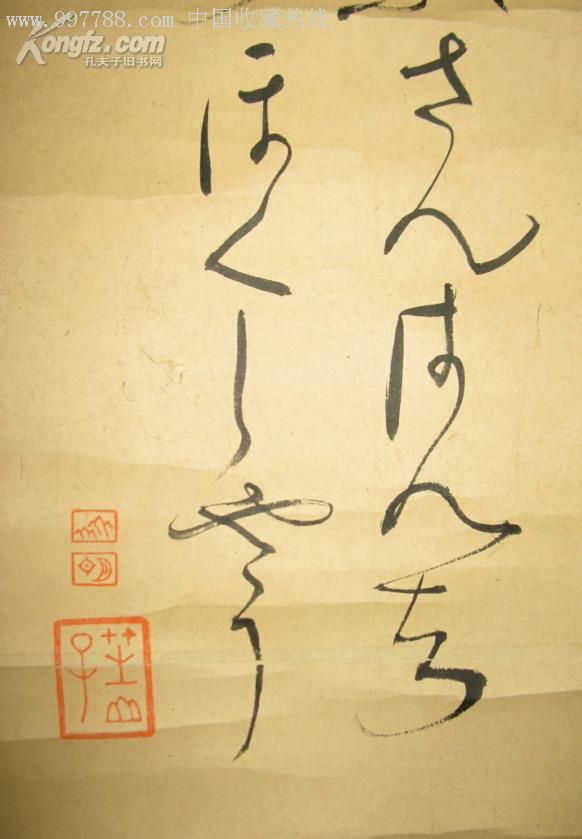 www.997788.com 中国收藏热线
Kongfz.com
孔夫子旧书网
さんはんち
ほくしやう